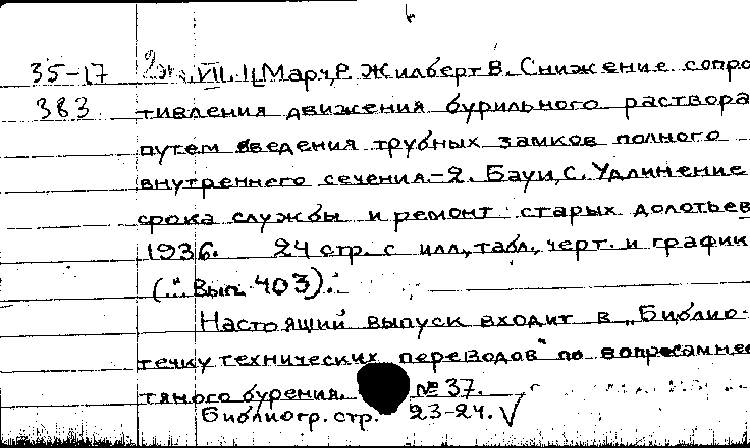 35-17 2эк. VII. 1. Марч, Р. Жилберт В. Снижение сопро
383 тивления движения бурильного раствора
путем введения трубных замков полного
внутреннего сечения.-2. Бауи, С. Удлинение
срока службы и ремонт старых долотьев
1936. 24 стр. с илл., табл., черт. и график
(... Вып. 403).
Настоящий выпуск входит в „Библио-
течку технических переводов" по вопросам неф
тяного бурения. № 37.
Библиогр. стр. 23-24. √